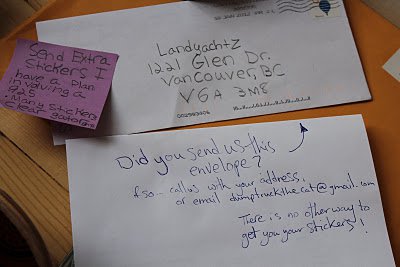 Send Extra
Stickers I
have a plan
involving a
Many stickers
Clear
Landyachtz
1221 Glen Dr.
Vancouver, BC
V6A 3M8
Did you send us this
envelope?
If so -- call us with your address,
or email dumptruckthecat@gmail.com
There is no other way to
get you your stickers!